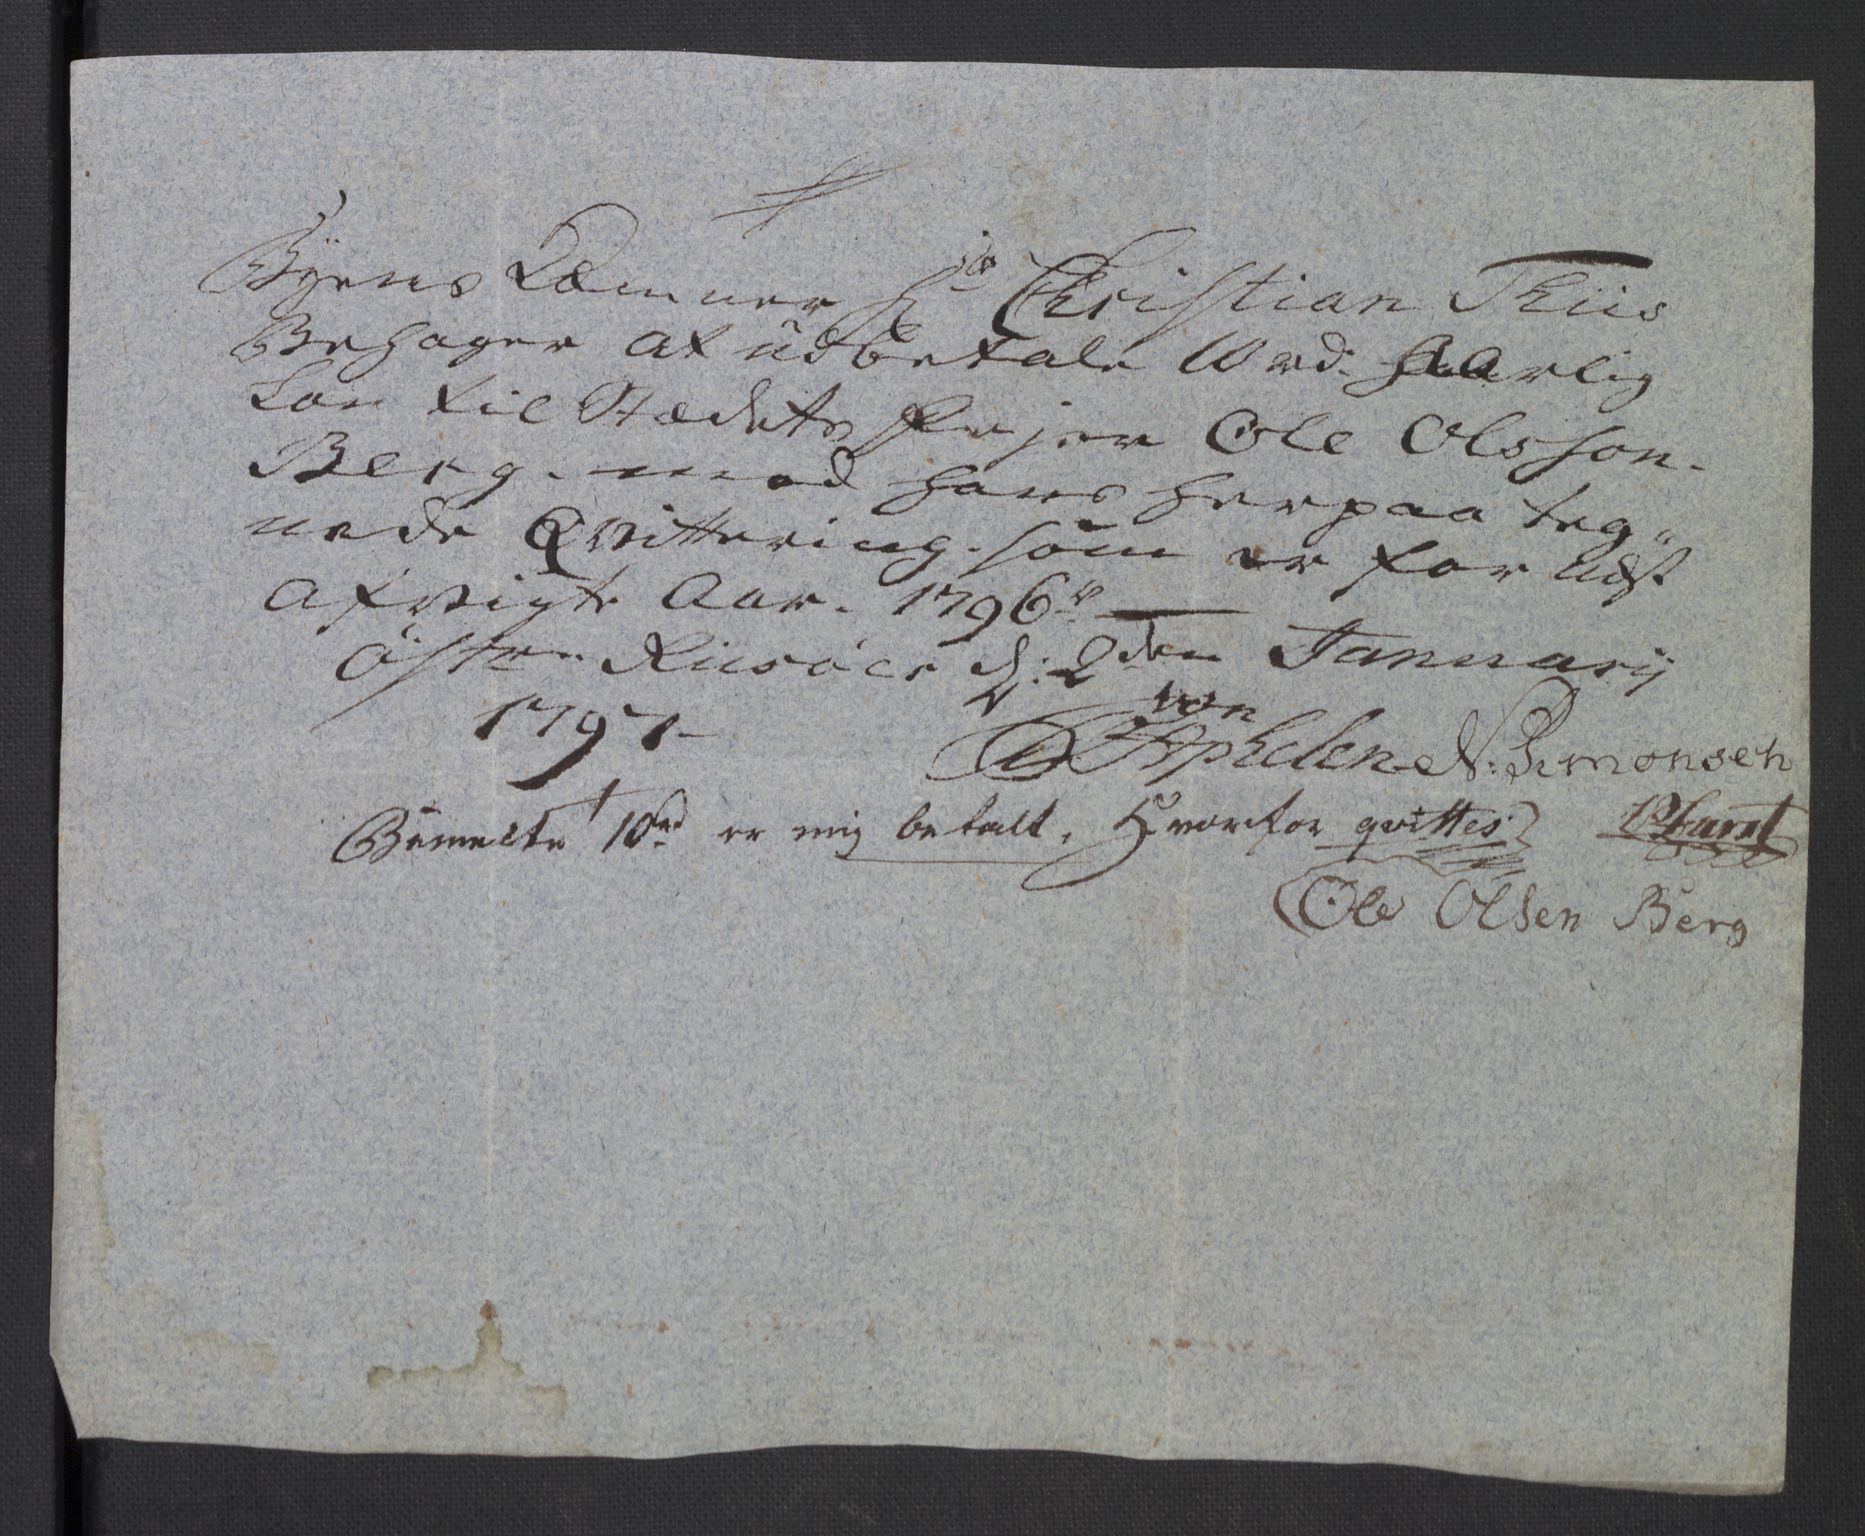 Byens Kæmner Hr Christian Thiis
Behager at udbetale 10 rd. Aarlig
Løn til Stædets Fejer Ole Olsson
Berg. mod hans herpaa teg„
nede Qvittering. som er for udst
afvigte Aar. 1796 —
Öster Riisöer d: 2den Januarij
1797 —
von
Aphelen N: Simonsen
Bemelte 10rd er mig betalt, Hvorfor qvitteres
Ole Olsen Berg